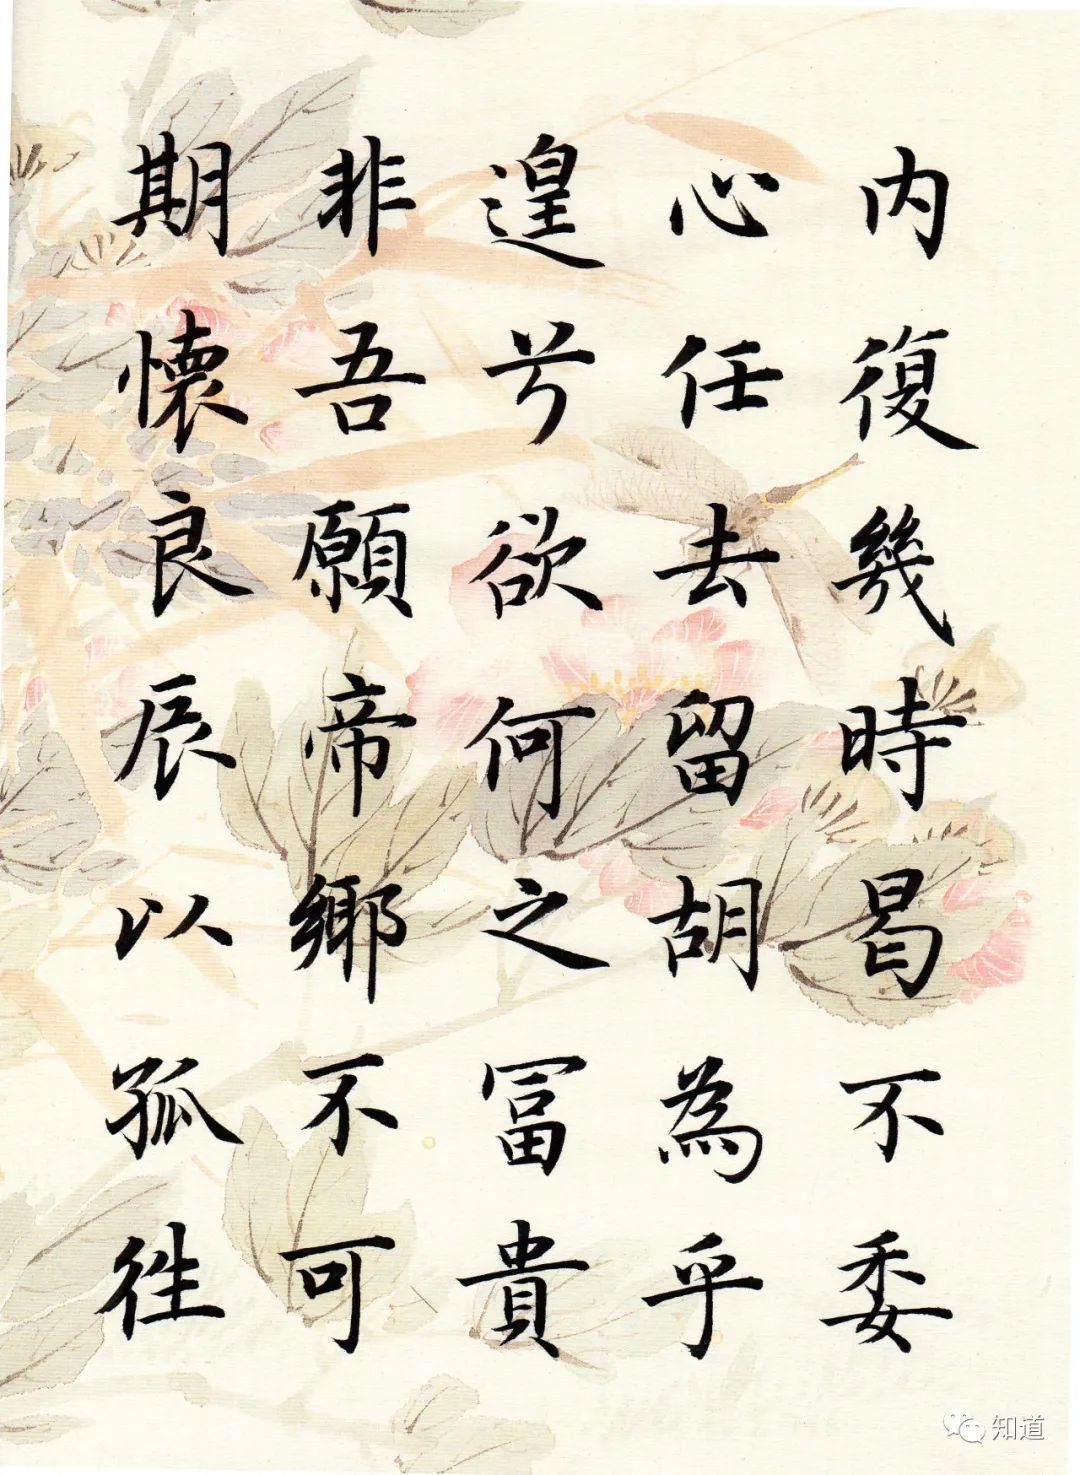 内復幾時曷不委
心任去留胡為乎
遑兮欲何之冨貴
非吾願帝鄉不可
期懷良辰以孤往
知道